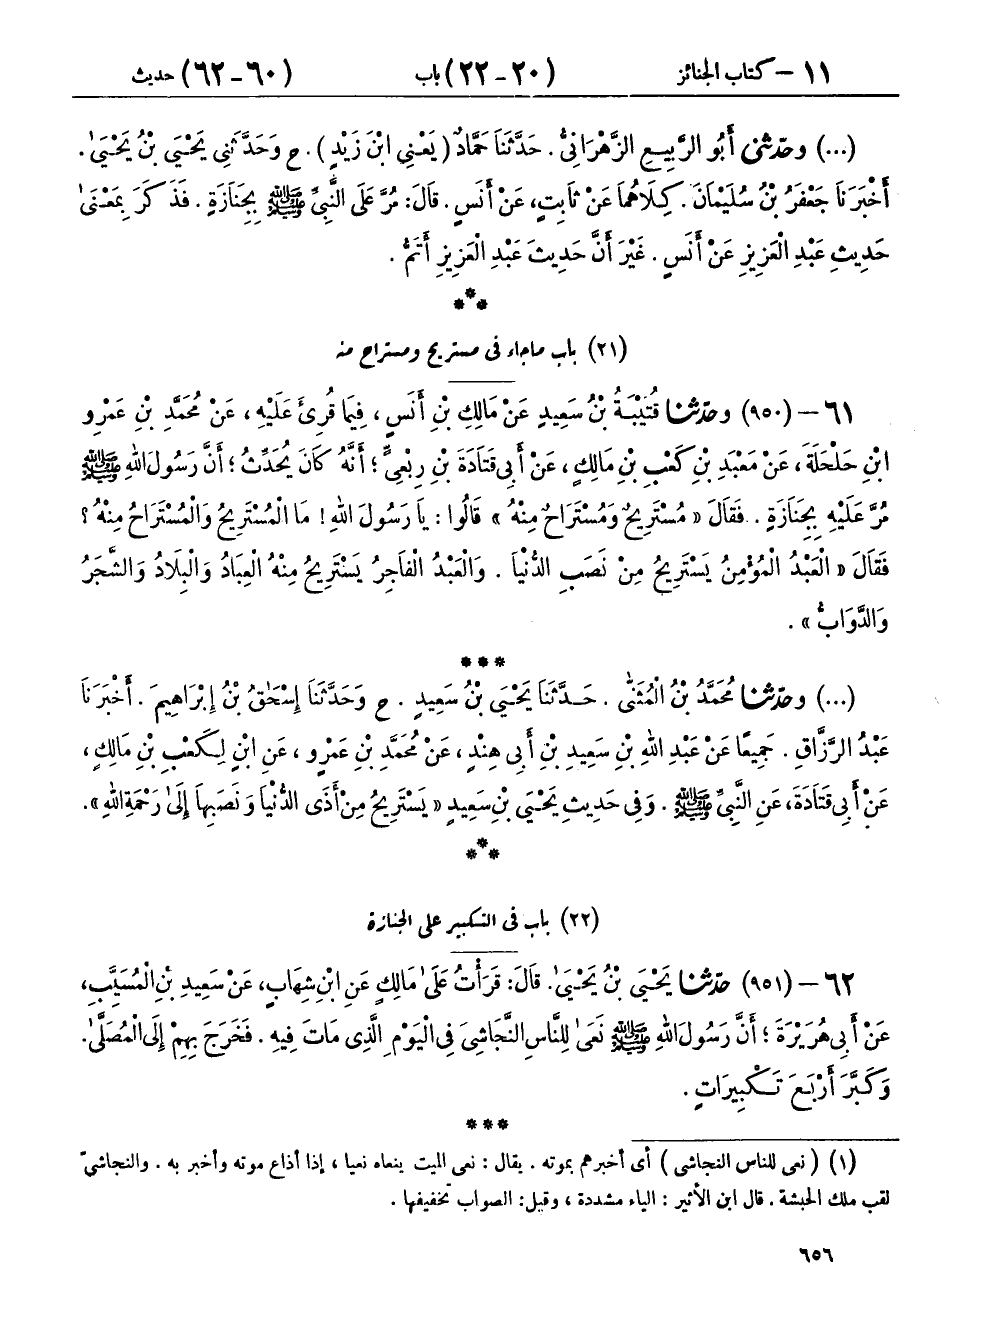 ١١ - كتاب الجنائز (٢٠ - ٢٢) باب (٦٠ - ٦٢) حديث
(...) وحَدَّثَنِي أَبُو الرَّبِيعِ الزَّهْرَانِيُّ. حَدَّثَنَا حَمَّادٌ (يَعْنِي ابْنَ زَيْدٍ). ح وَحَدَّثَنِي يَحْيَى بْنُ يَحْيَىٰ.
أَخْبَرَنَا جَعْفَرُ بْنُ سُلَيْمَانَ. كِلَاهُمَا عَنْ ثَابِتٍ، عَنْ أَنَسٍ. قَالَ: مُرَّ عَلَى النَّبِيِّ ﷺ بِجَنَازَةٍ. فَذَكَرَ بِمَعْنَىٰ
حَدِيثِ عَبْدِ الْعَزِيزِ عَنْ أَنَسٍ. غَيْرَ أَنَّ حَدِيثَ عَبْدِ الْعَزِيزِ أَتَمُّ.
***
(٢١) باب ماجاء فى مستريح ومستراح منه
٦١ - (٩٥٠) وحَدَّثَنَا قُتَيْبَةُ بْنُ سَعِيدٍ عَنْ مَالِكِ بْنِ أَنَسٍ، فِيمَا قُرِئَ عَلَيْهِ، عَنْ مُحَمَّدِ بْنِ عَمْرِو
ابْنِ حَلْحَلَةَ، عَنْ مَعْبَدِ بْنِ كَعْبِ بْنِ مَالِكٍ، عَنْ أَبِي قَتَادَةَ بْنِ رِبْعِيٍّ؛ أَنَّهُ كَانَ يُحَدِّثُ؛ أَنَّ رَسُولَ اللهِ ﷺ
مُرَّ عَلَيْهِ بِجَنَازَةٍ. فَقَالَ «مُسْتَرِيحٌ وَمُسْتَرَاحٌ مِنْهُ» قَالُوا: يَا رَسُولَ اللهِ! مَا الْمُسْتَرِيحُ وَالْمُسْتَرَاحُ مِنْهُ؟
فَقَالَ «الْعَبْدُ الْمُؤْمِنُ يَسْتَرِيحُ مِنْ نَصَبِ الدُّنْيَا. وَالْعَبْدُ الْفَاجِرُ يَسْتَرِيحُ مِنْهُ الْعِبَادُ وَالْبِلَادُ وَالشَّجَرُ
وَالدَّوَابُّ».
***
(...) وحَدَّثَنَا مُحَمَّدُ بْنُ الْمُثَنَّىٰ. حَدَّثَنَا يَحْيَىٰ بْنُ سَعِيدٍ. ح وَحَدَّثَنَا إِسْحَٰقُ بْنُ إِبْرَاهِيمَ. أَخْبَرَنَا
عَبْدُ الرَّزَّاقِ. جَمِيعًا عَنْ عَبْدِ اللهِ بْنِ سَعِيدِ بْنِ أَبِي هِنْدٍ، عَنْ مُحَمَّدِ بْنِ عَمْرٍو، عَنِ ابْنٍ لِكَعْبِ بْنِ مَالِكٍ،
عَنْ أَبِي قَتَادَةَ، عَنِ النَّبِيِّ ﷺ. وَفِي حَدِيثِ يَحْيَىٰ بْنِ سَعِيدٍ «يَسْتَرِيحُ مِنْ أَذَى الدُّنْيَا وَنَصَبِهَا إِلَىٰ رَحْمَةِ اللهِ».
***
(٢٢) باب فى التكبير على الجنازة
٦٢ - (٩٥١) حَدَّثَنَا يَحْيَىٰ بْنُ يَحْيَىٰ. قَالَ: قَرَأْتُ عَلَىٰ مَالِكٍ عَنِ ابْنِ شِهَابٍ، عَنْ سَعِيدِ بْنِ الْمُسَيَّبِ،
عَنْ أَبِي هُرَيْرَةَ؛ أَنَّ رَسُولَ اللهِ ﷺ نَعَىٰ لِلنَّاسِ النَّجَاشِيَ فِي الْيَوْمِ الَّذِي مَاتَ فِيهِ. فَخَرَجَ بِهِمْ إِلَى الْمُصَلَّىٰ.
وَكَبَّرَ أَرْبَعَ تَكْبِيرَاتٍ.
***
(١) (نعى للناس النجاشى) أى أخبرهم بموته. يقال: نعى الميت ينعاه نعيا، إذا أذاع موته وأخبر به. والنجاشىّ
لقب ملك الحبشة. قال ابن الأثير: الياء مشددة، وقيل: الصواب تخفيفها.
٦٥٦